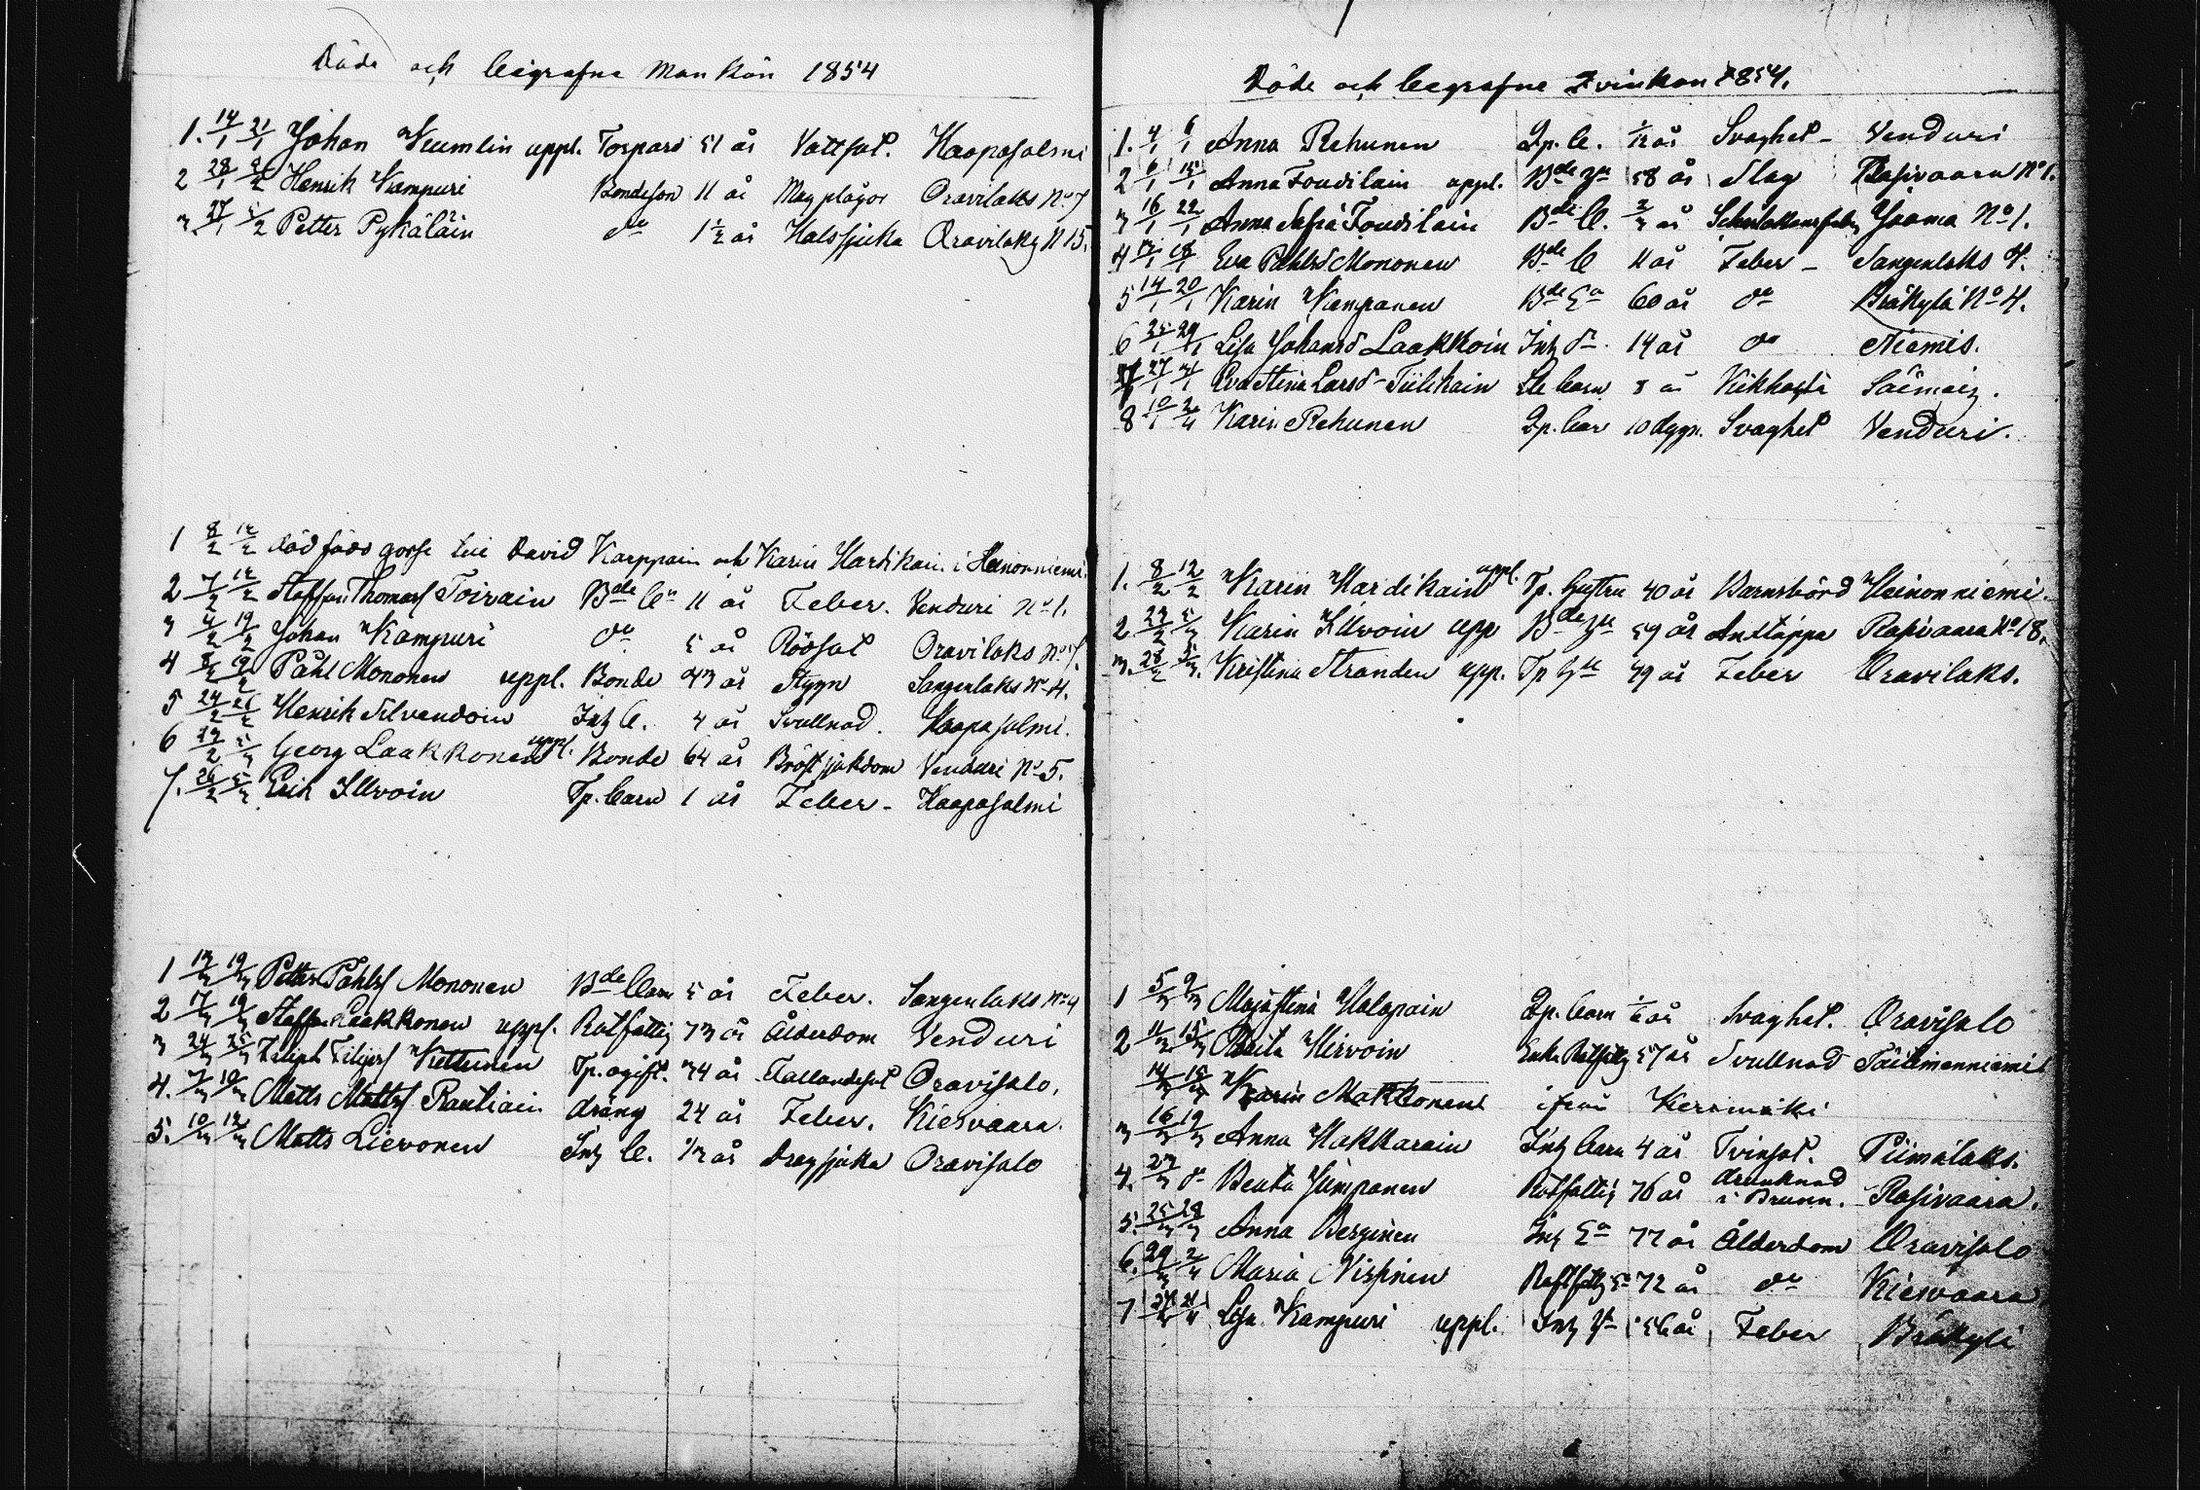 Döde och begrafne Mankön 1854
1. 14/1 21/1 Johan Krumlin uppl. Torpare 51 år Vattsot. Haapasalmi
2 28/1 5/2 Henrik Kampuri Bondeson 11 år Magplågor Oravilaks No 7
3. 27/1 5/2 Petter Pykäläin do 1 1/2 år Halssjuka Oravilaks N 15.
1 8/2 12/2 dödfödd gosse till David Karppain och Karin Hardikain i Heinoniemi.
2 7/2 12/2 Staffan Thomass Toivain Bde bn 11 år Feber. Venduri No 1.
3 4/2 19/2 Johan Kampuri do 5 år Rödsot Oravilaks No 7.
4 8/2 19/2 Påhl Mononen uppl. Bonde 43 år Stygn Sangenlaks No 4.
5 24/2 26/2 Henrik Silvendoin Inh b. 4 år Svullnad. Haapasalmi.
6 22/2 5/3 Georg Laakkonen uppl. Bonde 64 år Bröstsjukdom Venduri No 5.
7. 26/2 5/3 Erik Illvoin Tp. barn 1 år Feber - Haapasalmi
1 13/3 19/3 Petter Påhlss Mononen Bde barn 5 år Feber. Sangenlaks No 4
2 17/3 19/3 Staffan Laakkonen uppl. Rotfattig 73 år Ålderdom Venduri
3 24/3 25/3 Filip Filipss Kettunen Tp. ogift. 34 år Fallandesot Oravisalo.
4. 7/3 10/3 Matts Mattss Rautiain. dräng 24 år Feber. Kiesvaara.
5. 10/3 12/3 Matts Lievonen Inh b. 1/3 år Dragsjuka Oravisalo
Döde och begrafne Qvinkön 1854.
1. 4/1 6/1 Anna Rehunen Bp. b. 1/12 år Svaghet - Venduri
2 6/1 15/1 Anna Toudilain uppl. Bde 58 år Slag Rasivaara No 1.
3 16/1 22/1 Anna Sofia Toudilain Bde b. 2/3 år Jaama No 1.
4 13/1 18/1 Eva Påhlsd Mononen Bde b 11 år Feber - Sangenlaks 4.
5 14/1 20/1 Karin Kampanen Bde Ea 60 år do Bräkylä No 4.
6 25/1 29/1 Lisa Johansd Laakkoin Inh dr. 14 år do Niemis.
7 27/1 31/1 Eva Stina Larsd Tiilikain barn 8 år Kikhosta
8 10/1 2/4 Karin Rehunen Bp. bar 10 dygn. Svaghet Venduri.
1. 8/2 12/2 Karin Hardikain uppl. Tp. hustru 40 år Barnsbörd Heinoniemi.
2 23/2 5/3 Karin Illvoin upp Bde 59 år Andtäppa Rasivaara No 18.
3. 28/2 5/3. Kristina Stranden upp. Tp 49 år Feber Oravilaks.
1 5/3 9/3 Maja Stina Halapain Bp. barn 1/6 år Svaghet. Oravisalo
2 11/3 15/3 Brita Hirvoin Enka Rotfattig 57 år Svullnad
14/3 15/3 Karin Makkonen ifrån Kerimäki
3 16/3 19/3 Anna Hakkarain Inh barn 4 år Tvinsot. Piimälaks.
4. 23/3 do Beata Jumpanen Rotfattig 76 år drunknad i Brunn. - Rasivaara.
5. 25/3 28/3 Anna Berginen Inh Ea 77 år Ålderdom Oravisalo
6. 29/3 2/4 Maria Nispinen Rotfattig Ea 72 år do Kiesvaara
7 Lisa Kampuri uppl. Inh 56 år Feber Bräkylä